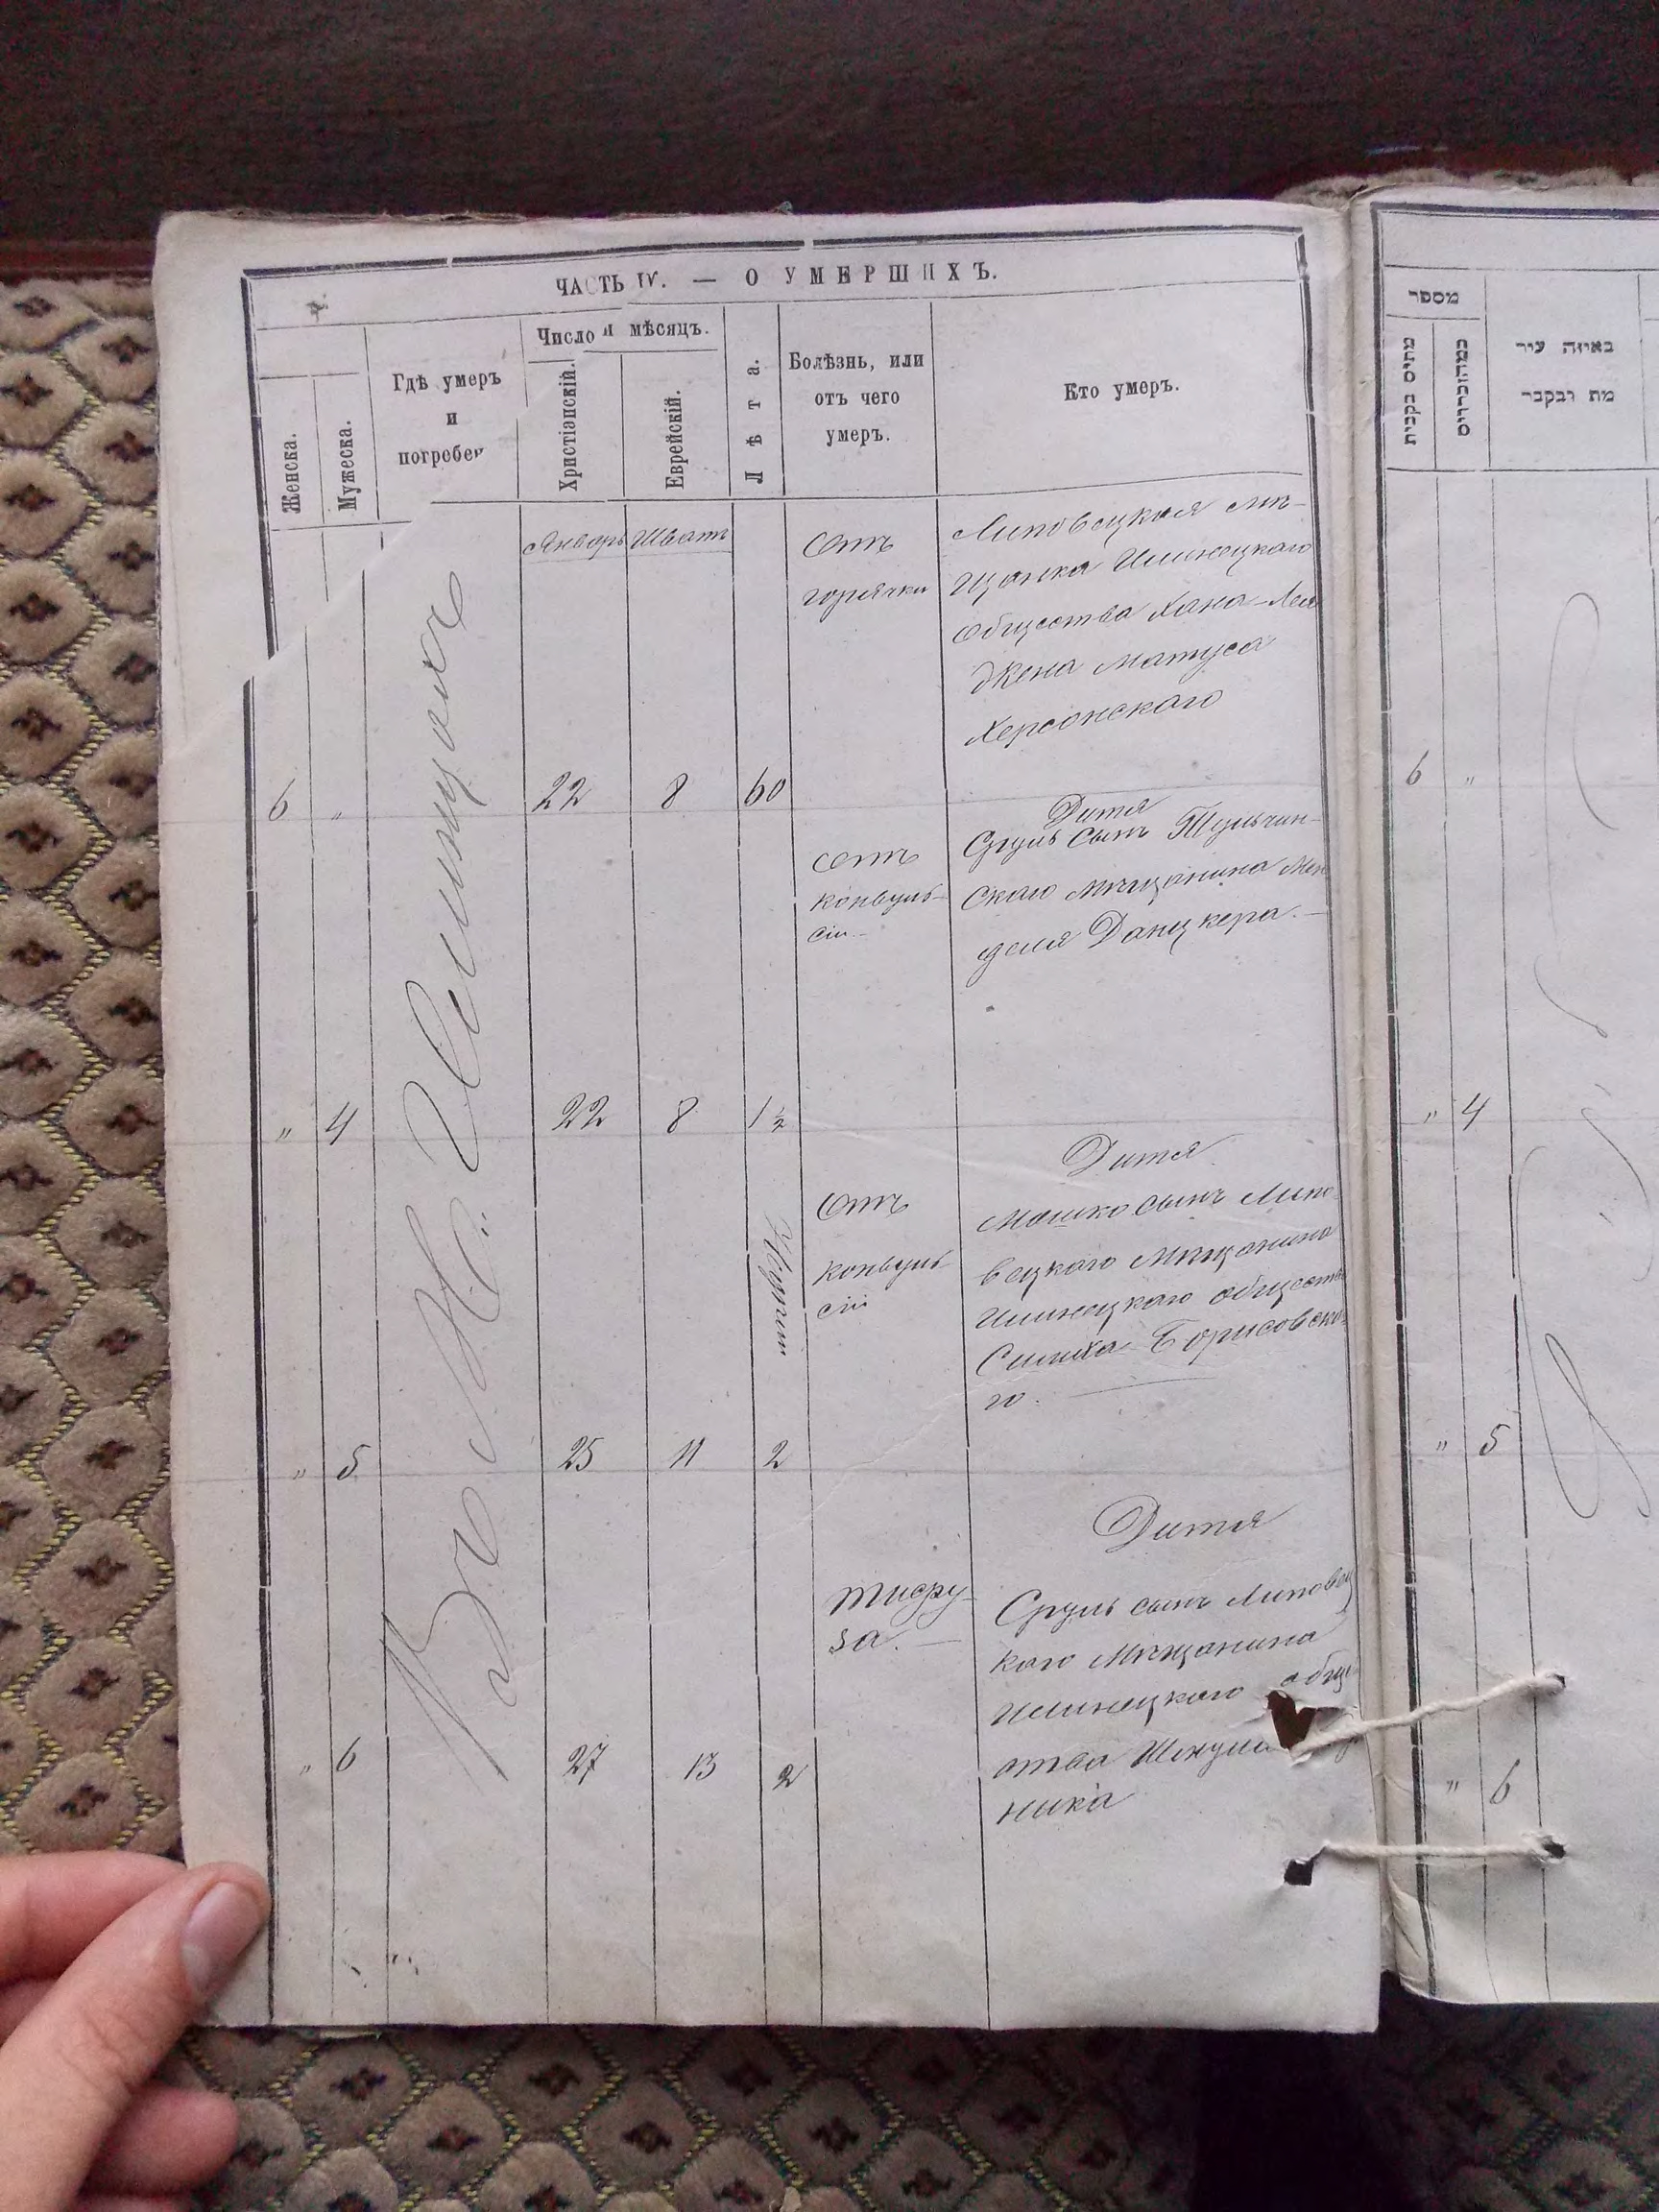 ЧАСТЬ IV. — О УМЕРШИХЪ.
Женска.
Мужеска.
Гдѣ умеръ
и
погребен
Число и мѣсяцъ.
Христіанскій.
Еврейскій.
Лѣта.
Болѣзнь, или
отъ чего
умеръ.
Кто умеръ.
Январь Шватъ
Въ М. Илинцахъ
Отъ
горячки
Липовецкая мѣ-
щанка Илинецкаго
Общества Хана-Лея
жена Матуса
Херсонскаго
6 " 22 8 60
Отъ
конвуль-
сіи
Дитя
Сруль сынъ Тульчин-
скаго мѣщанина Мен
деля Данцкера.
" 4 22 8 1½
Отъ
конвуль
сіи
Дитя
Мошко сынъ Липо
вецкаго Мѣщанина
Илинецкаго обществ
Симха Борисовска
го.
" 5 25 11 2
тифу
за.
Дитя
Сруль сынъ Липовец
каго Мѣщанина
Илинецкаго обще
ства
ника
" 6 27 13 2
מספר
באיזה עיר
מת ונקבר
6 "
" 4
" 5
" 6